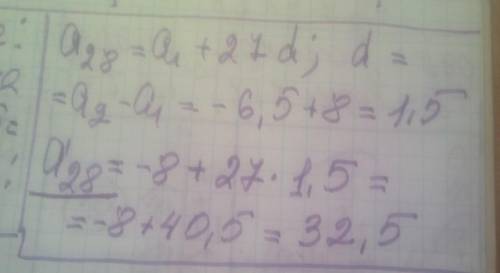 a₂₈ = a₁ + 27d; d =
= a₂ - a₁ = -6,5 + 8 = 1,5
a₂₈ = -8 + 27 · 1,5 =
= -8 + 40,5 = 32,5